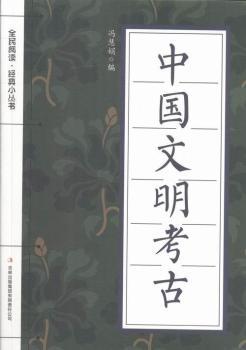 全民阅读·经典小丛书
冯慧娟◎编
中国文明考古
吉林出版集团有限责任公司